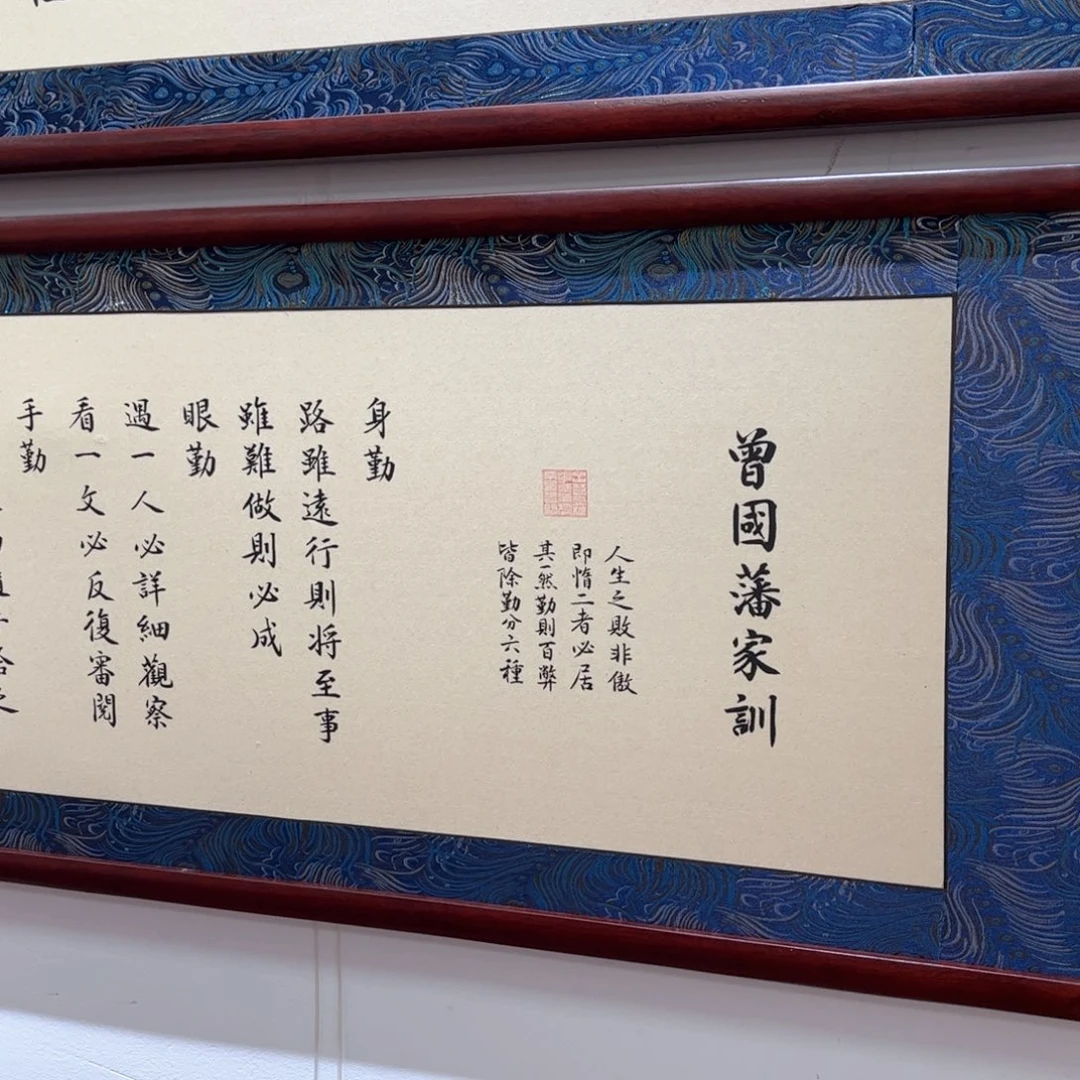 曾國藩家訓
人生之敗非傲
即惰二者必居
其一然勤則百弊
皆除勤分六種
身勤
路雖遠行則将至事
雖難做則必成
眼勤
遇一人必詳細觀察
看一文必反復審閱
手勤